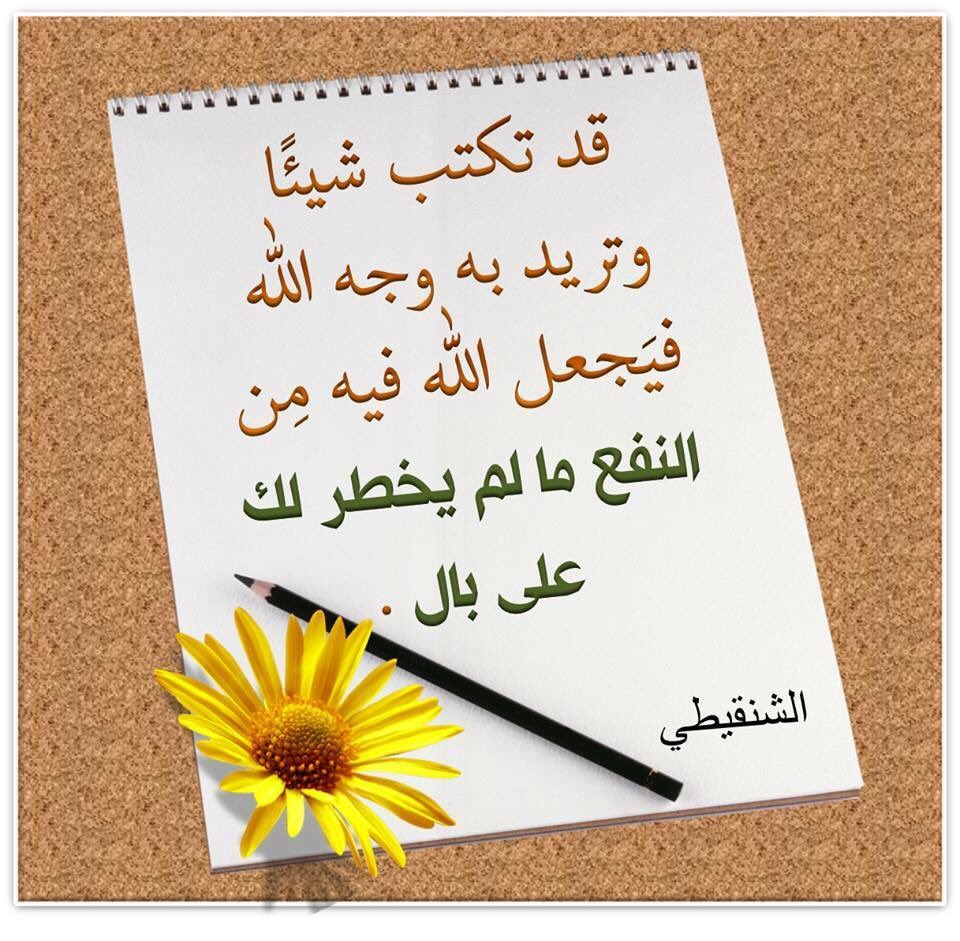 قد تكتب شيئًا
وتريد به وجه الله
فيَجعل الله فيه مِن
النفع ما لم يخطر لك
على بال .
الشنقيطي